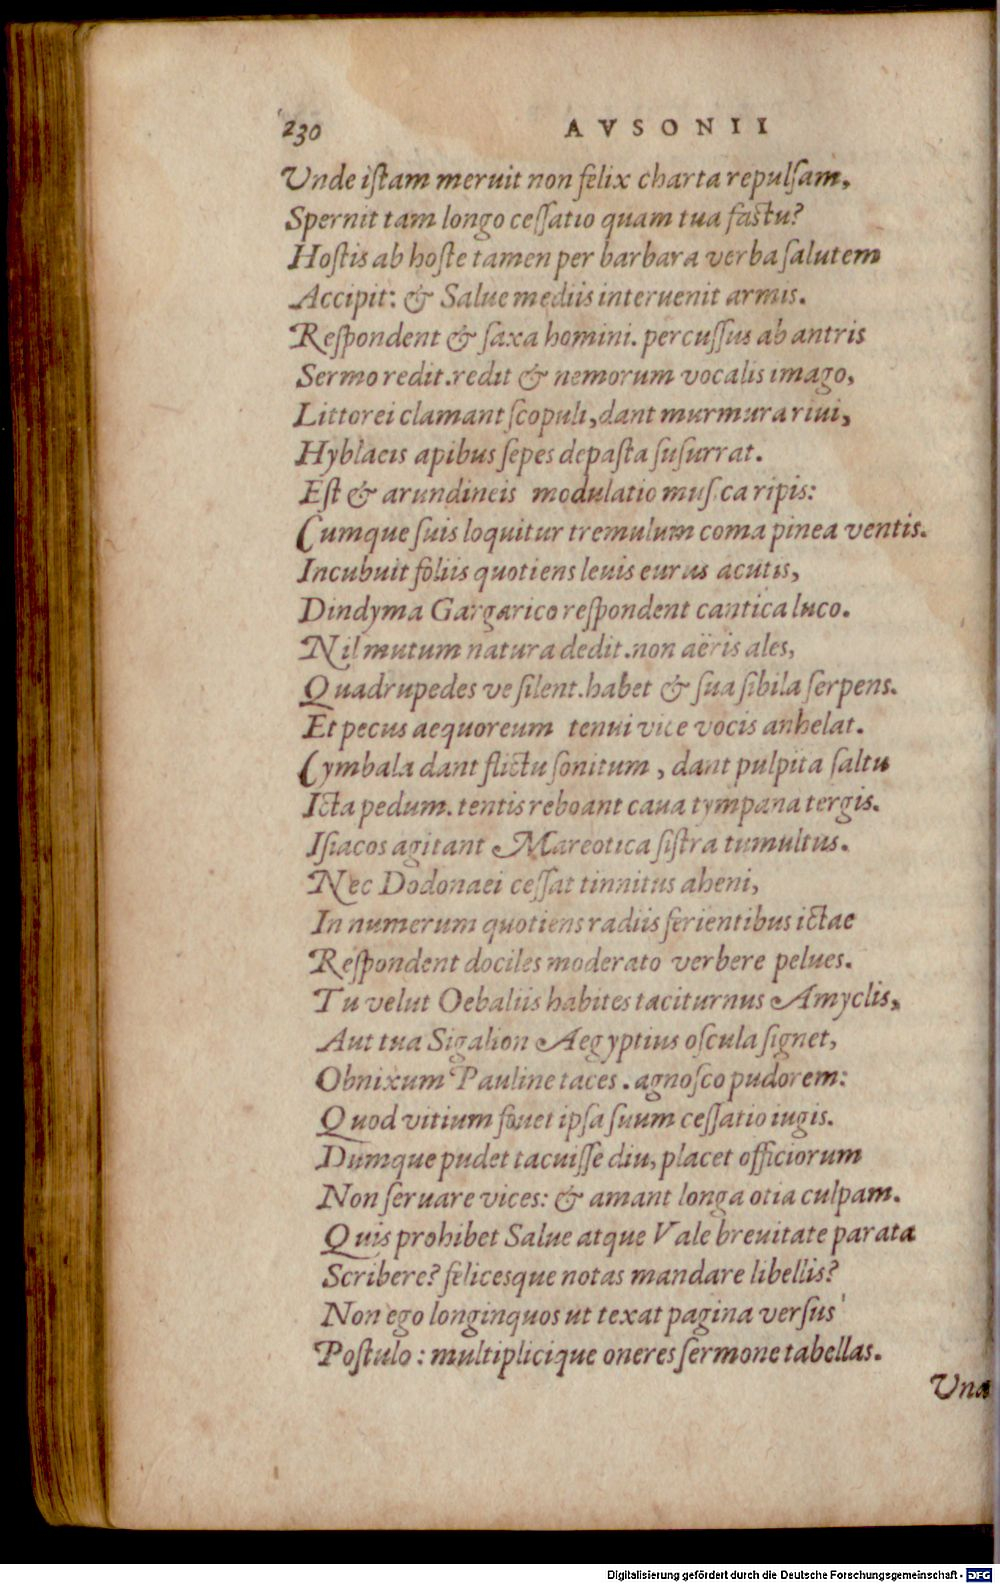 230 AVSONII
Vnde iſtam meruit non felix charta repulſam,
Spernit tam longo ceſſatio quam tua faſtu?
Hoſtis ab hoſte tamen per barbara verba ſalutem
Accipit: & Salue mediis interuenit armis.
Reſpondent & ſaxa homini. percuſſus ab antris
Sermo redit. redit & nemorum vocalis imago,
Littorei clamant ſcopuli, dant murmura riui,
Hyblaeis apibus ſepes depaſta ſuſurrat.
Eſt & arundineis modulatio muſca ripis:
Cumque ſuis loquitur tremulum coma pinea ventis.
Incubuit foliis quotiens leuis eurus acutis,
Dindyma Gargarico reſpondent cantica luco.
Nil mutum natura dedit. non aëris ales,
Quadrupedes ve ſilent. habet & ſua ſibila ſerpens.
Et pecus aequoreum tenui vice vocis anhelat.
Cymbala dant flictu ſonitum, dant pulpita ſaltu
Icta pedum. tentis reboant caua tympana tergis.
Iſiacos agitant Mareotica ſiſtra tumultus.
Nec Dodonaei ceſſat tinnitus aheni,
In numerum quotiens radiis ferientibus ictae
Reſpondent dociles moderato verbere pelues.
Tu velut Oebaliis habites taciturnus Amyclis,
Aut tua Sigalion Aegyptius oſcula ſignet,
Obnixum Pauline taces. agnoſco pudorem:
Quod vitium fouet ipſa ſuum ceſſatio iugis.
Dumque pudet tacuiſſe diu, placet officiorum
Non ſeruare vices: & amant longa otia culpam.
Quis prohibet Salue atque Vale breuitate parata
Scribere? felicesque notas mandare libellis?
Non ego longinquos ut texat pagina verſus
Poſtulo: multiplicique oneres ſermone tabellas.
Vna
Digitalisierung gefördert durch die Deutsche Forschungsgemeinschaft - DFG